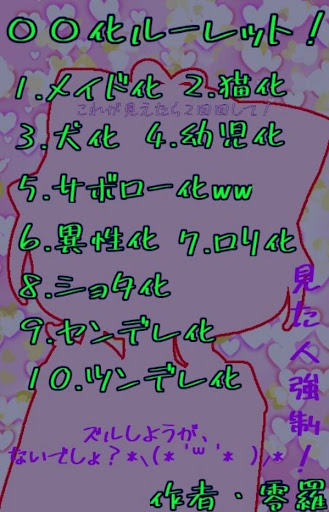 〇〇化ルーレット！
1.メイド化 2.猫化
これが見えたら2回回して！
3.犬化 4.幼児化
5.サボロー化ww
6.異性化 7.ロリ化
8.ショタ化
9.ヤンデレ化
10.ツンデレ化
見た人強制！
ズルしようが、
ないでしょ？*\(* 'ω' *)/*
作者・零羅